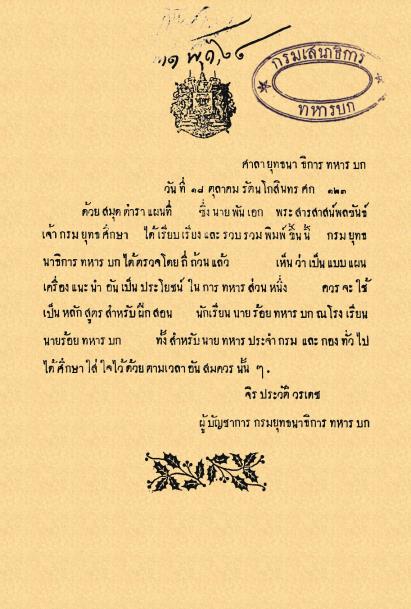 ๑๑ พุฒ, ๖๔
กรมเสนาธิการ
ทหารบก
ศาลายุทธนาธิการ ทหาร บก
วัน ที่ ๑๘ ตุลาคม รัตนโกสินทร ศก ๑๒๓
ด้วย สมุด ตำรา แผนที่ ซึ่ง นาย พัน เอก พระ สารสาสน์พลขันธ์
เจ้า กรม ยุทธ ศึกษา ได้ เรียบ เรียง และ รวบ รวม พิมพ์ ขึ้น นี้ กรม ยุทธ
นาธิการ ทหาร บก ได้ ตรวจ โดย ถี่ ถ้วน แล้ว เห็น ว่า เป็น แบบ แผน
เครื่อง แนะ นำ อัน เป็น ประโยชน์ ใน การ ทหาร ส่วน หนึ่ง ควร จะ ใช้
เป็น หลัก สูตร สำหรับ ฝึก สอน นักเรียน นาย ร้อย ทหาร บก ณโรง เรียน
นายร้อย ทหาร บก ทั้ง สำหรับ นาย ทหาร ประจำ กรม และ กอง ทั่ว ไป
ได้ ศึกษา ใส่ ใจไว้ ด้วย ตามเวลา อัน สมควร นั้น ๆ .
จิร ประวัติ วรเดช
ผู้ บัญชาการ กรมยุทธนาธิการ ทหาร บก